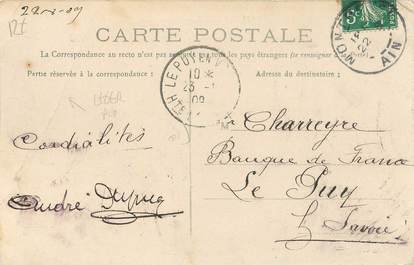 22-1-09
CARTE POSTALE
La Correspondance au recto n'est pas acceptée par tous les pays étrangers (se renseigner
Partie réservée à la correspondance :
Adresse du destinataire :
5c
AIN
LE PUY EN V
23 -1
09
Hte
Cordialités
Charreyre
Banque de France
Le Puy
Hte Savoie
André